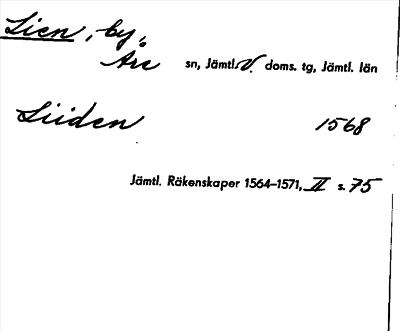 Lien, by,
Åre sn, Jämtl. V. doms. tg, Jämtl. län
Liiden 1568
Jämtl. Räkenskaper 1564–1571, II s. 75